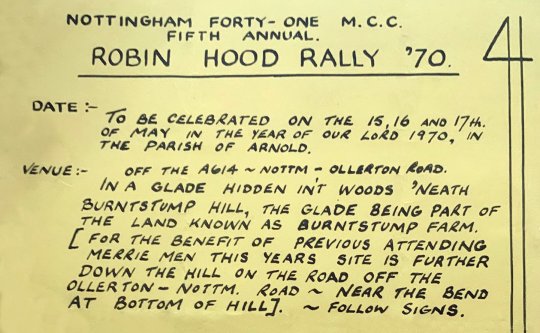 NOTTINGHAM FORTY-ONE M.C.C.
FIFTH ANNUAL.
ROBIN HOOD RALLY '70.
41
DATE :- TO BE CELEBRATED ON THE 15, 16 AND 17th.
OF MAY IN THE YEAR OF OUR LORD 1970, IN
THE PARISH OF ARNOLD.
VENUE :- OFF THE A614 ~ NOTTM - OLLERTON ROAD.
IN A GLADE HIDDEN IN'T WOODS 'NEATH
BURNTSTUMP HILL, THE GLADE BEING PART OF
THE LAND KNOWN AS BURNTSTUMP FARM.
[FOR THE BENEFIT OF PREVIOUS ATTENDING
MERRIE MEN THIS YEARS SITE IS FURTHER
DOWN THE HILL ON THE ROAD OFF THE
OLLERTON - NOTTM. ROAD ~ NEAR THE BEND
AT BOTTOM OF HILL]. ~ FOLLOW SIGNS.